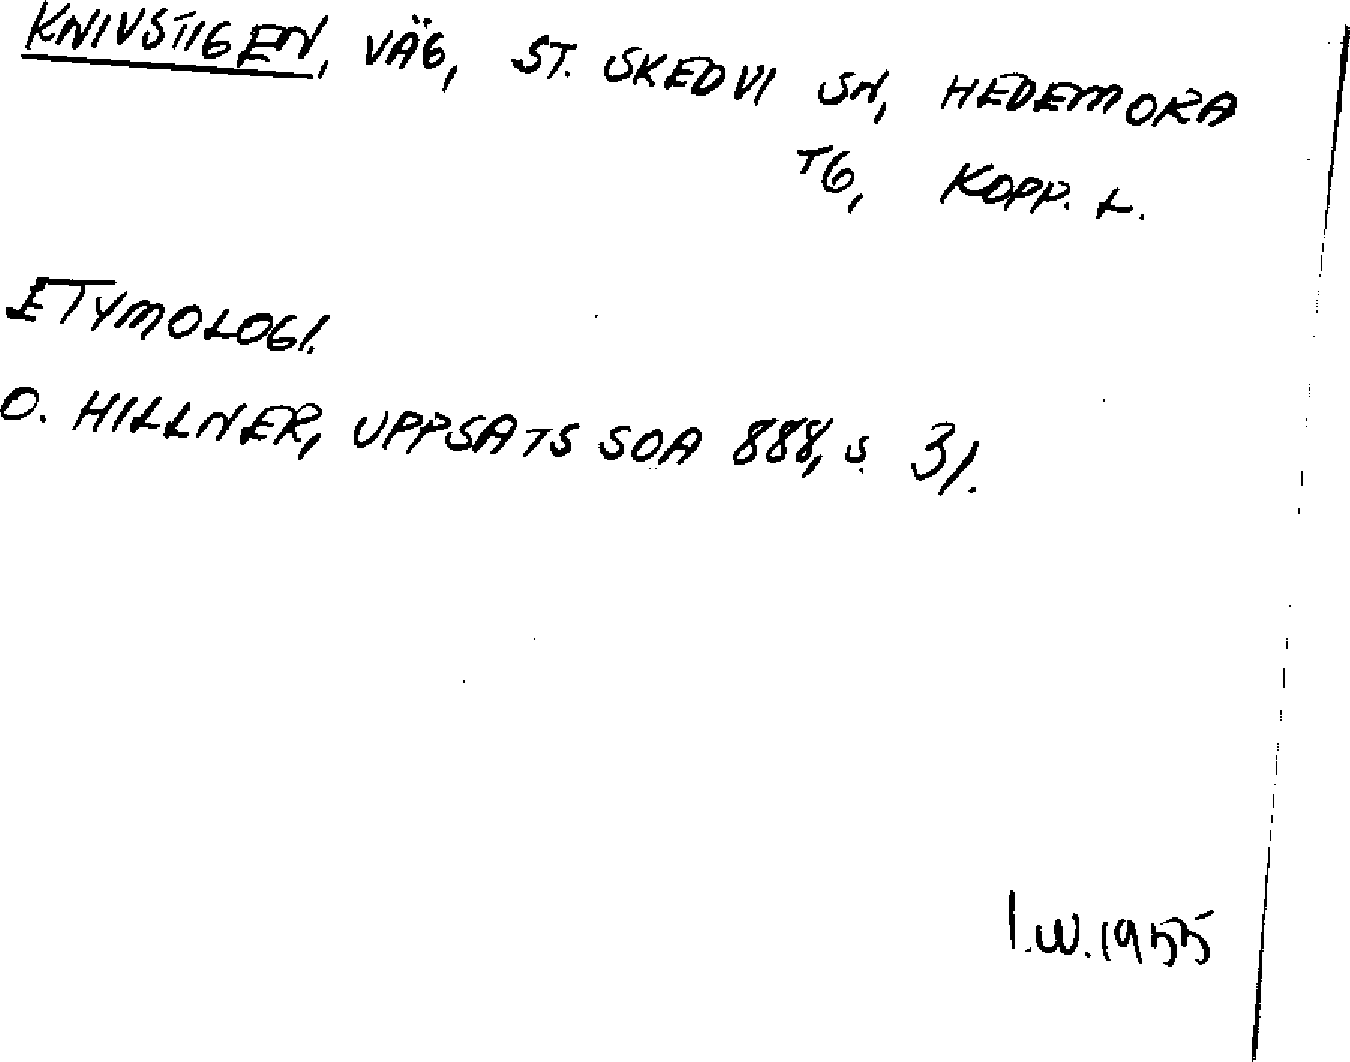 KNIVSTIGEN, VÄG, ST. SKEDVI SN, HEDEMORA
TG, KOPP. L.
ETYMOLOGI.
O. HILLNER, UPPSATS SOA 888, S. 31.
I.W.1955